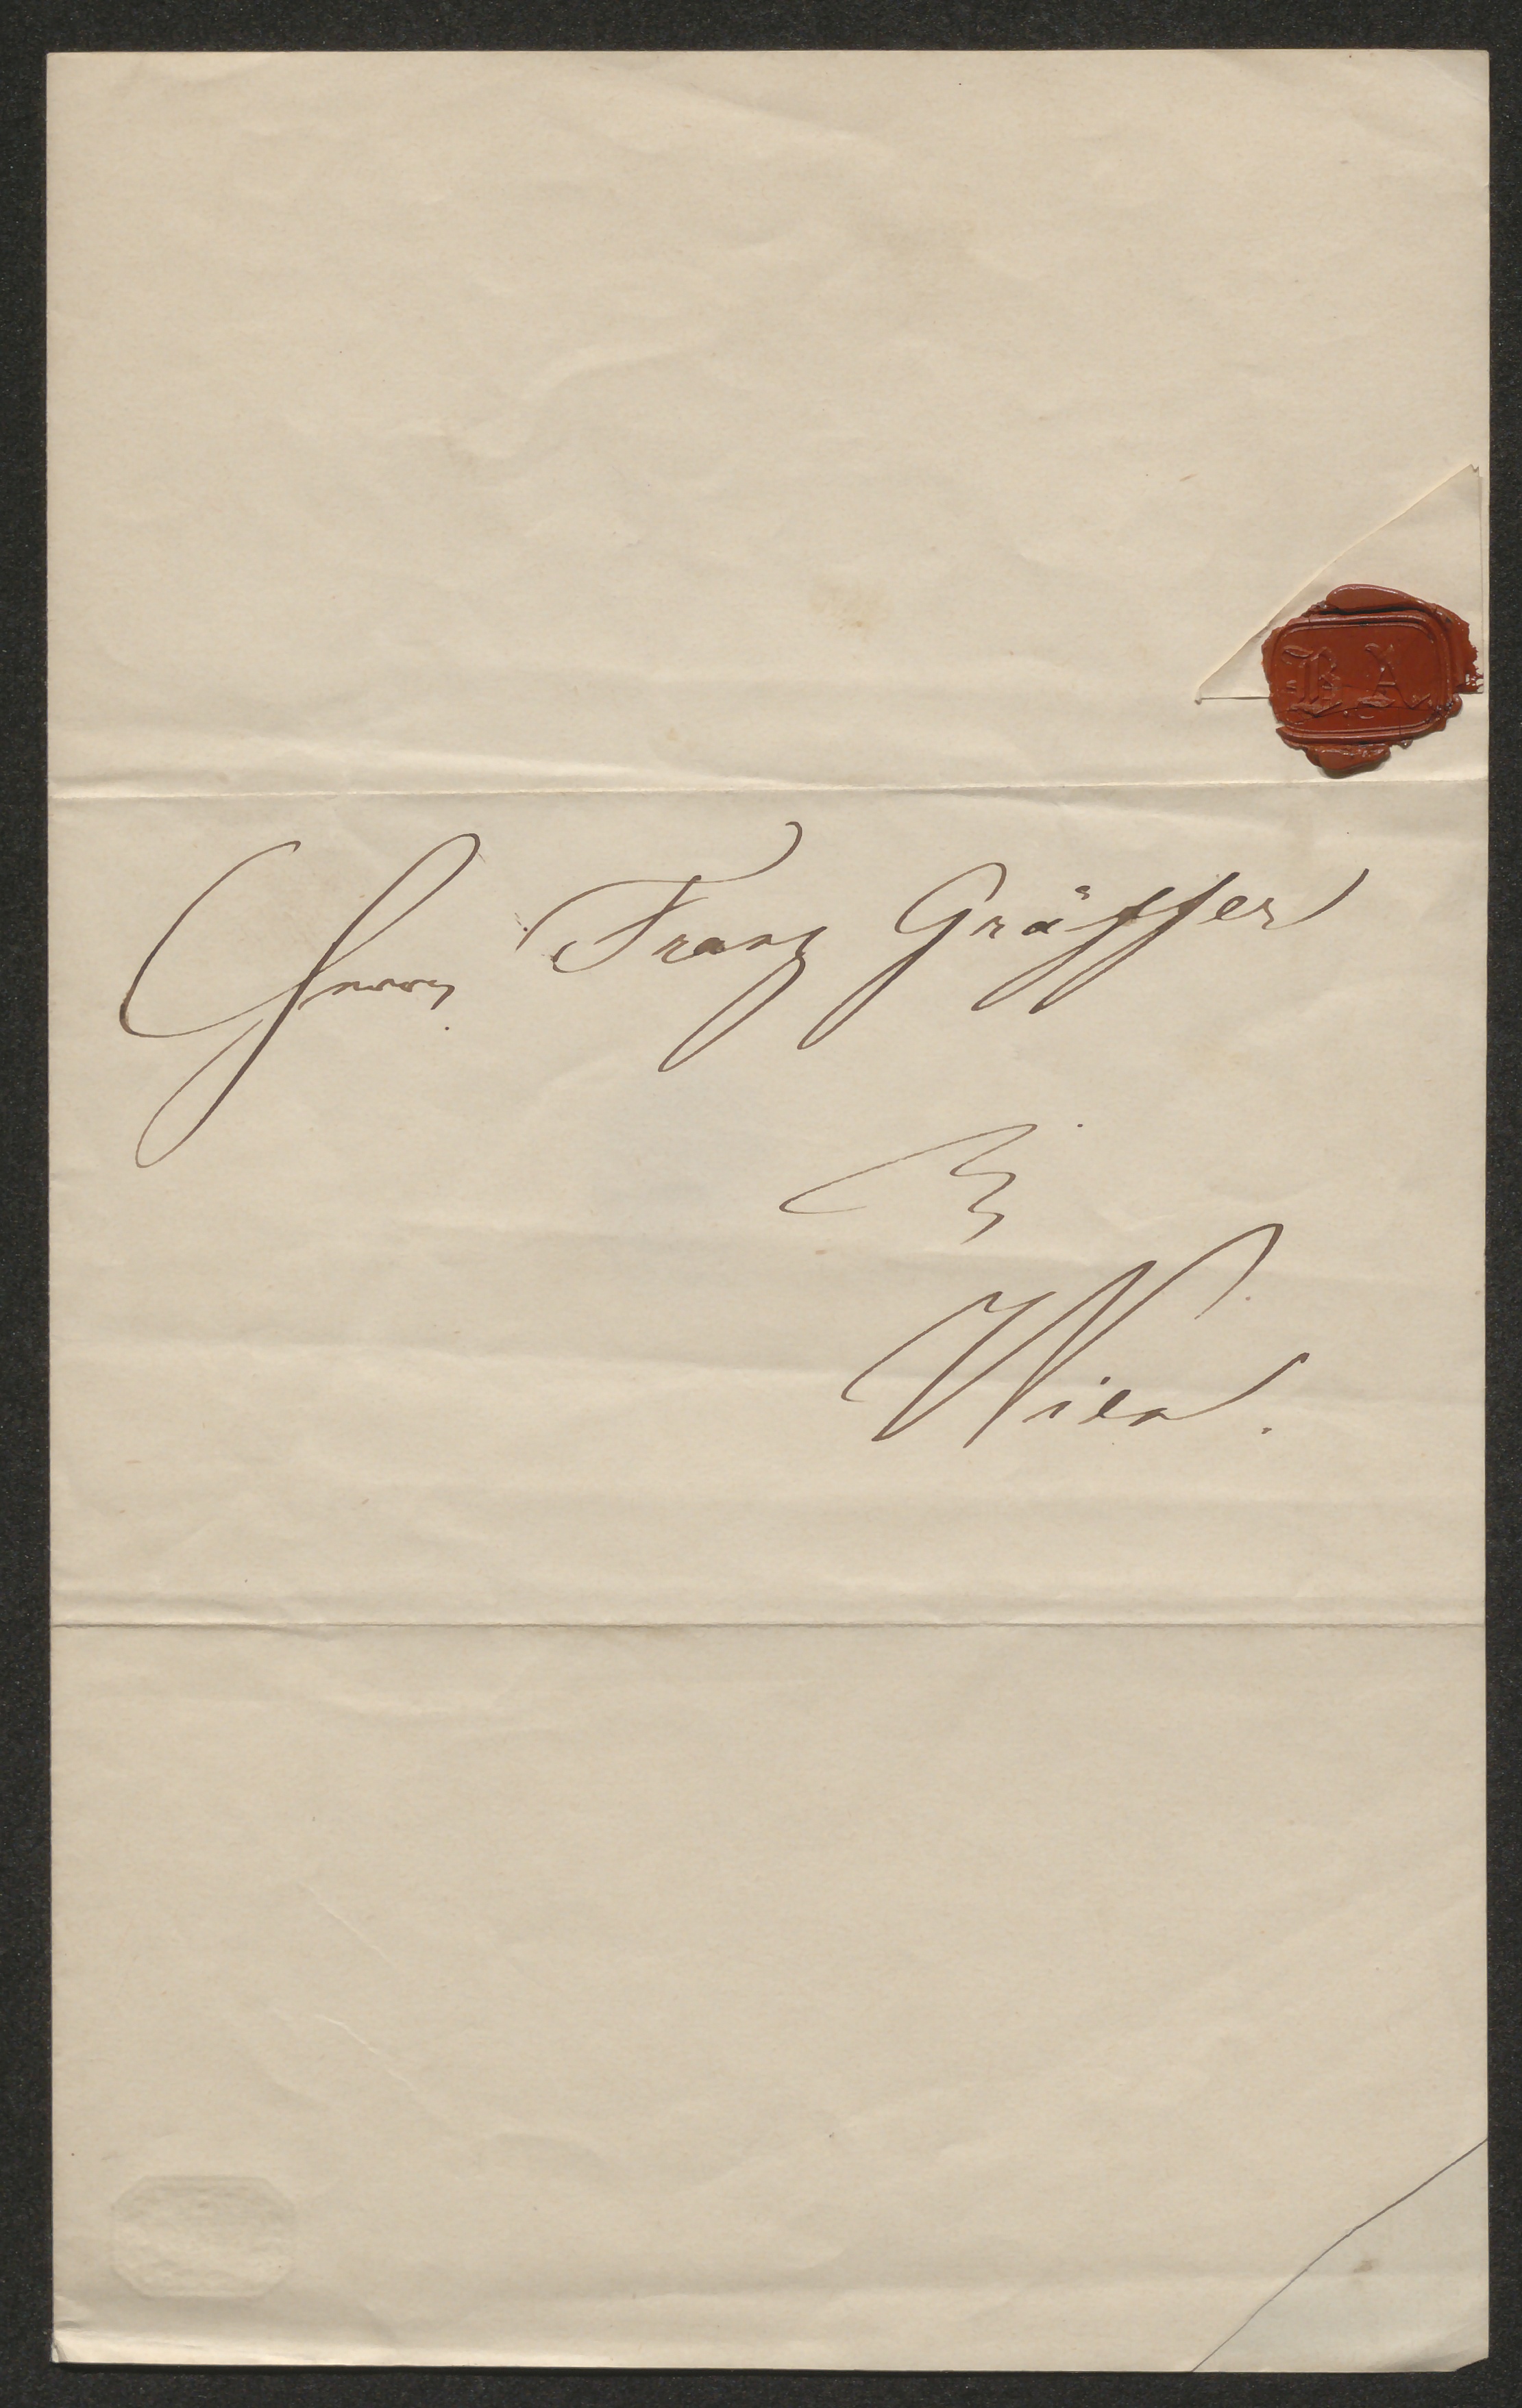 B A
Herrn Franz Gräffer
in
Wien.